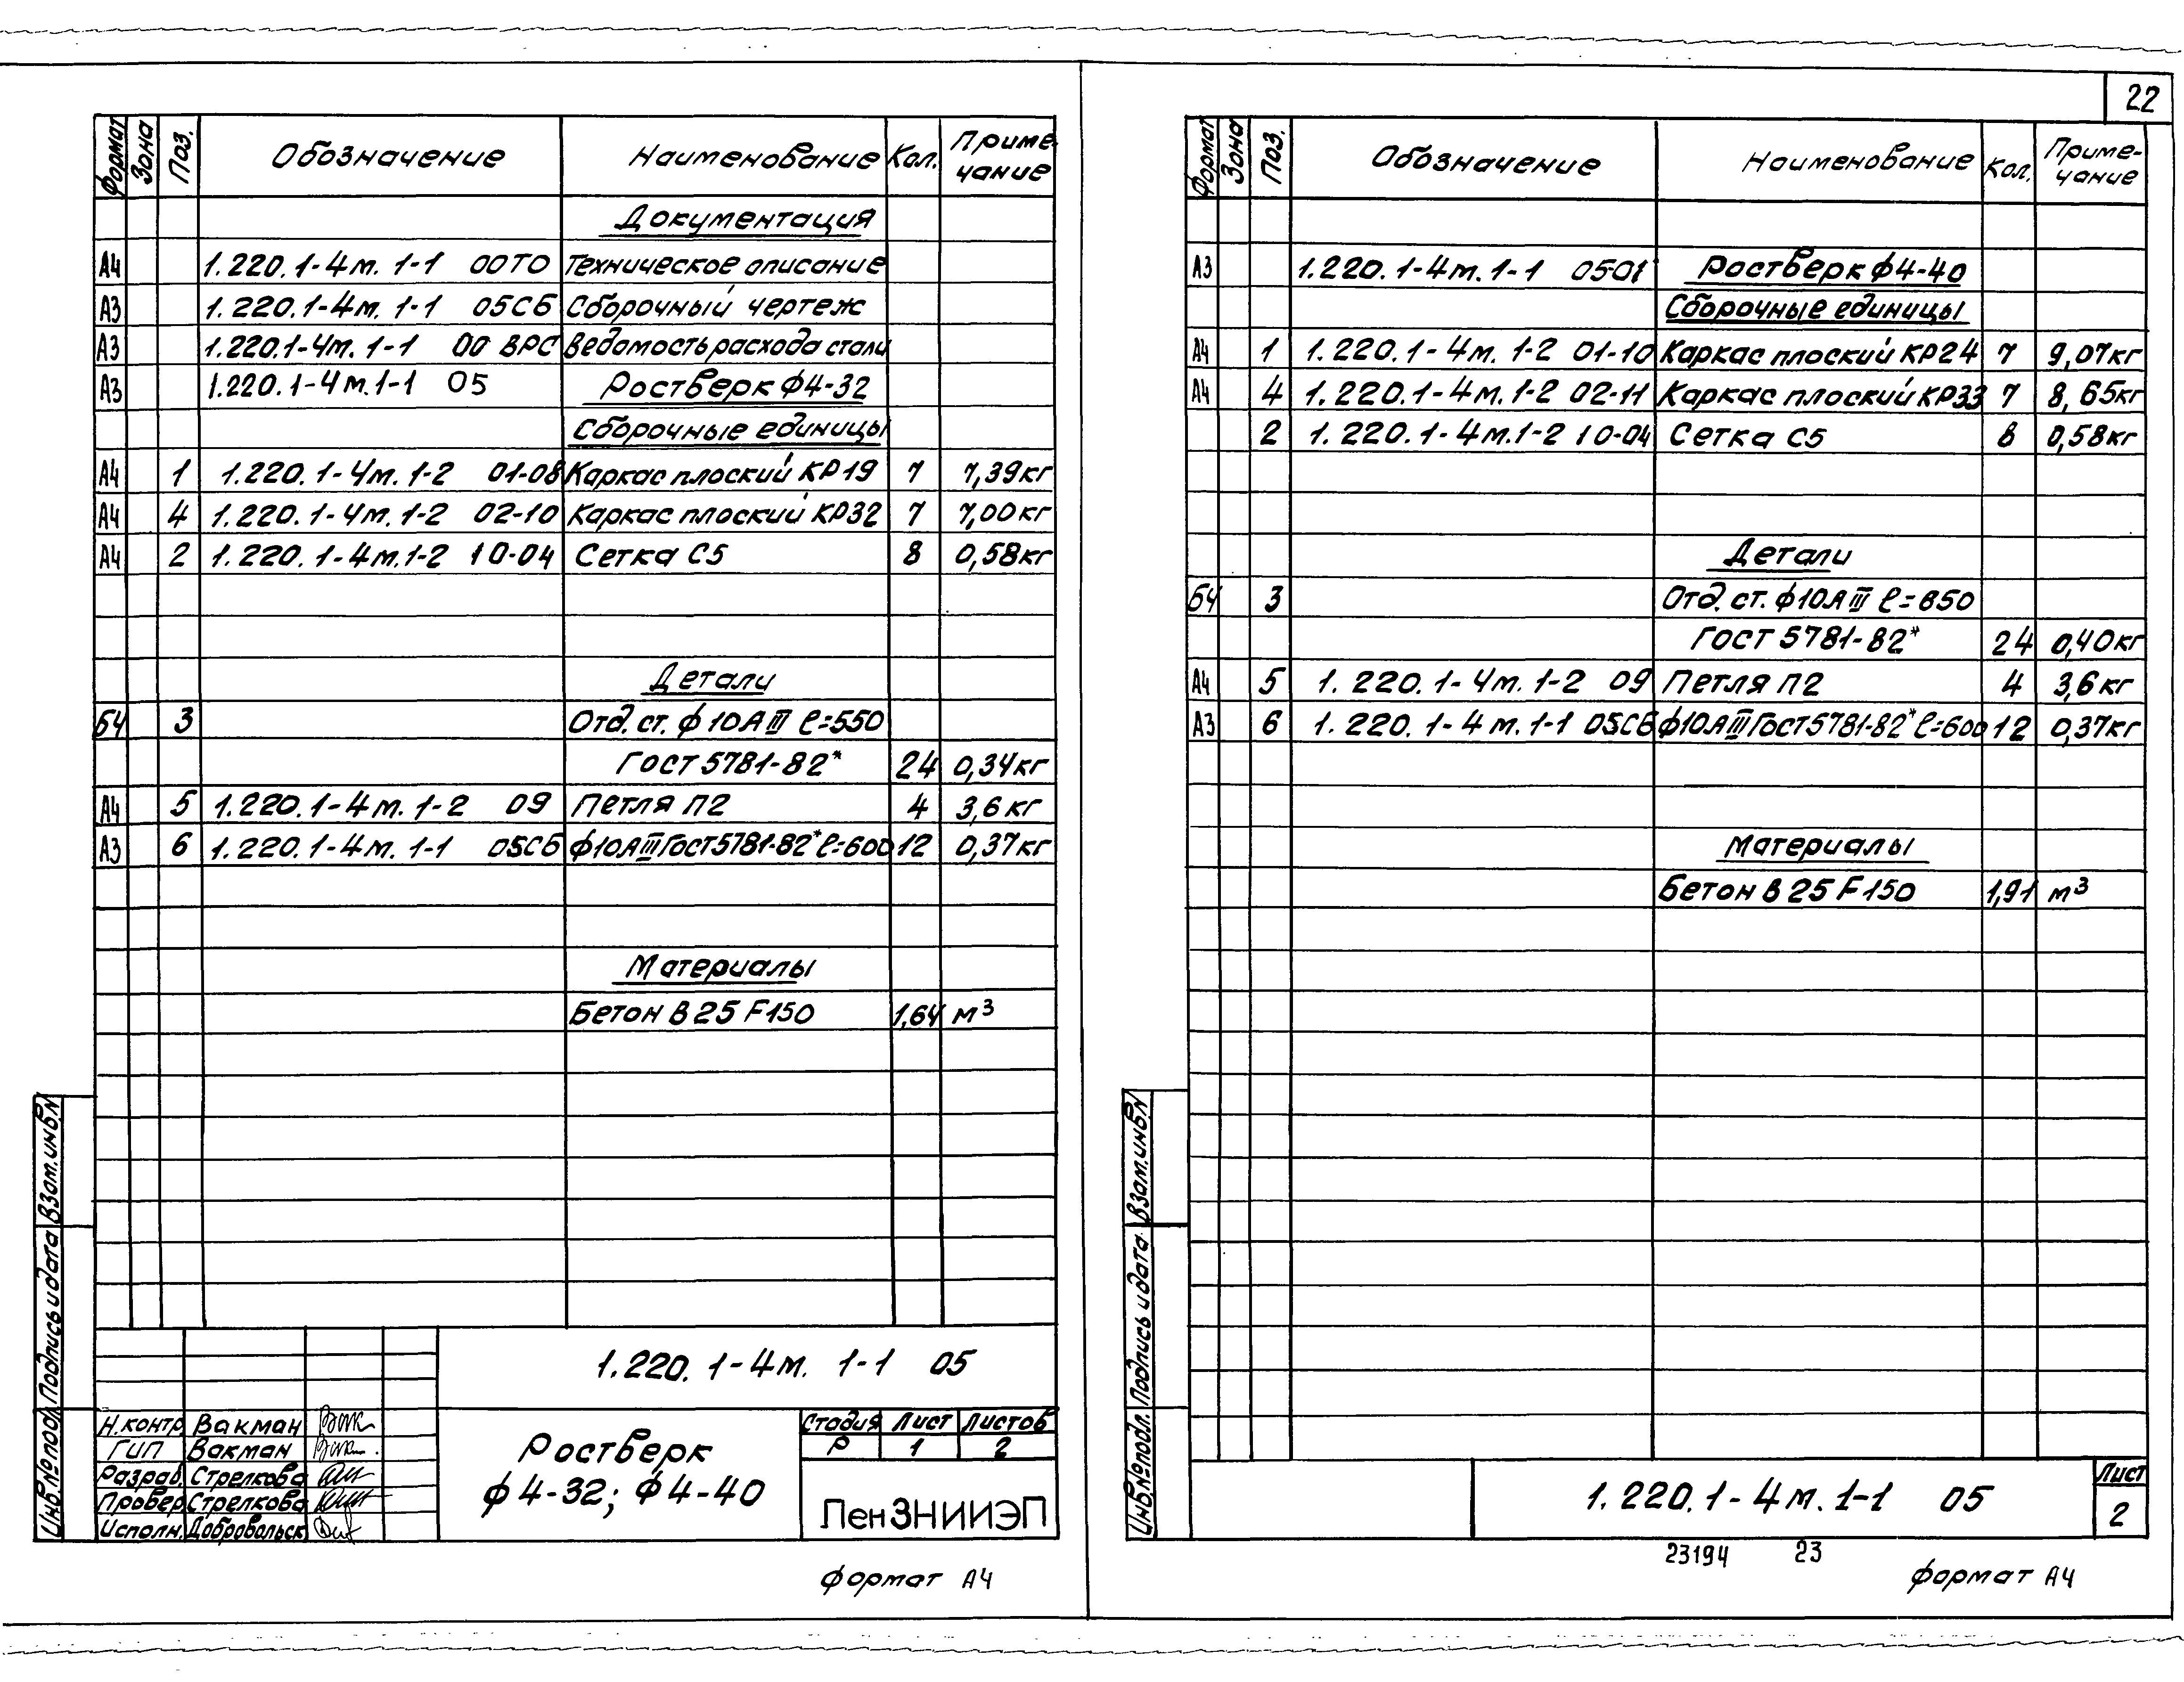 22
Формат Зона Поз. Обозначение Наименование Кол. Приме-чание
Документация
А4 1.220.1-4м. 1-1 00ТО Техническое описание
А3 1.220.1-4м. 1-1 05СБ Сборочный чертеж
А3 1.220.1-4м. 1-1 00 ВРС Ведомость расхода стали
А3 1.220.1-4м.1-1 05 Ростверк ф4-32
Сборочные единицы
А4 1 1.220.1-4м. 1-2 01-08 Каркас плоский КР19 7 7,39кг
А4 4 1.220.1-4м.1-2 02-10 Каркас плоский КР32 7 7,00кг
А4 2 1.220.1-4м.1-2 10-04 Сетка С5 8 0,58кг
Детали
БЧ 3 Отд. ст. ф10АIII ℓ=550
ГОСТ 5781-82* 24 0,34кг
А4 5 1.220.1-4м. 1-2 09 Петля П2 4 3,6кг
А3 6 1.220.1-4м. 1-1 05СБ ф10АIII ГОСТ5781-82* ℓ=600 12 0,37кг
Материалы
Бетон В25 F150 1,64 м³
1.220. 1-4м. 1-1 05
Н.контр Вакман
ГИП Вакман
Разраб. Стрелкова
Провер Стрелкова
Исполн. Добровольск
Ростверк
ф4-32; ф4-40
Стадия Лист Листов
Р 1 2
ЛенЗНИИЭП
Инв.№подл. Подпись и дата Взам.инв.N
формат А4
Формат Зона Поз. Обозначение Наименование Кол. Приме-чание
А3 1.220.1-4м.1-1 05-01 Ростверк ф4-40
Сборочные единицы
А4 1 1.220.1-4м. 1-2 01-10 Каркас плоский КР24 7 9,07кг
А4 4 1.220.1-4м. 1-2 02-11 Каркас плоский КР33 7 8,65кг
2 1.220.1-4м.1-2 10-04 Сетка С5 8 0,58кг
Детали
БЧ 3 Отд. ст. ф10АIII ℓ=650
ГОСТ 5781-82* 24 0,40кг
А4 5 1.220.1-4м. 1-2 09 Петля П2 4 3,6кг
А3 6 1.220.1-4м.1-1 05СБ ф10АIII ГОСТ5781-82* ℓ=600 12 0,37кг
Материалы
Бетон В25 F150 1,91 м³
Инв.№подл. Подпись и дата Взам.инв.N
1.220.1-4м.1-1 05
Лист
2
23194 23
формат А4